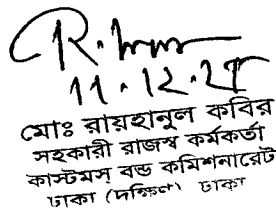 11.12.27
মোঃ রায়হানুল কবির
সহকারী রাজস্ব কর্মকর্তা
কাস্টমস্ বন্ড কমিশনারেট
ঢাকা (দক্ষিণ) ঢাকা